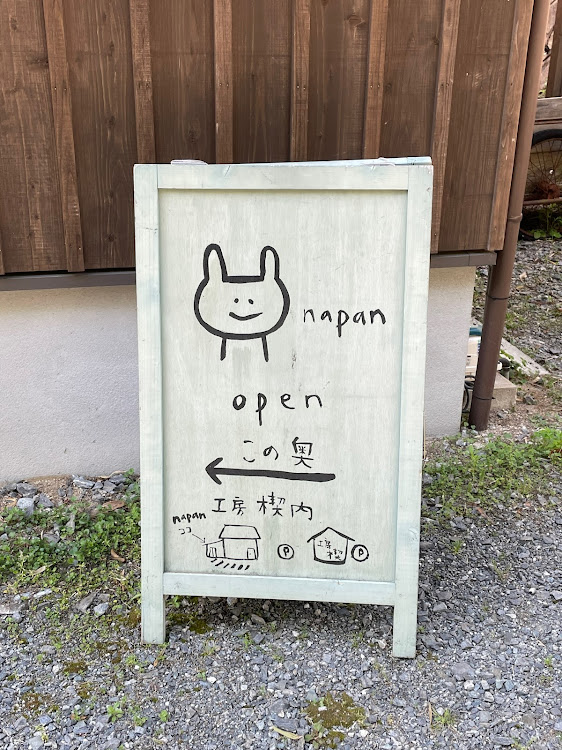 napan
open
この奥
工房 楔内
napan
ココ
P
工房
楔
P